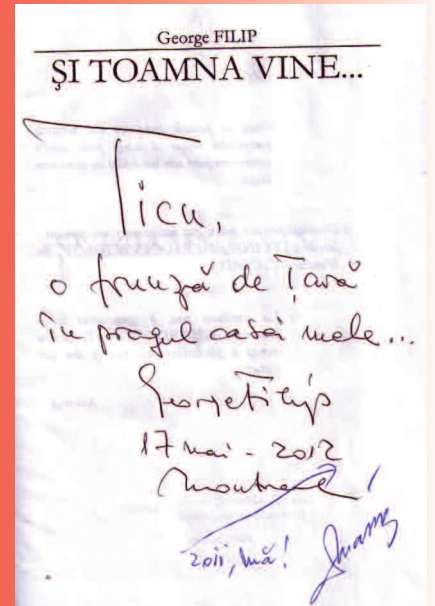 George FILIP
ȘI TOAMNA VINE...
Ticu,
o frunză de Țară
în pragul casei mele...
George Filip
17 mai - 2012
Montreal
2011, mă!